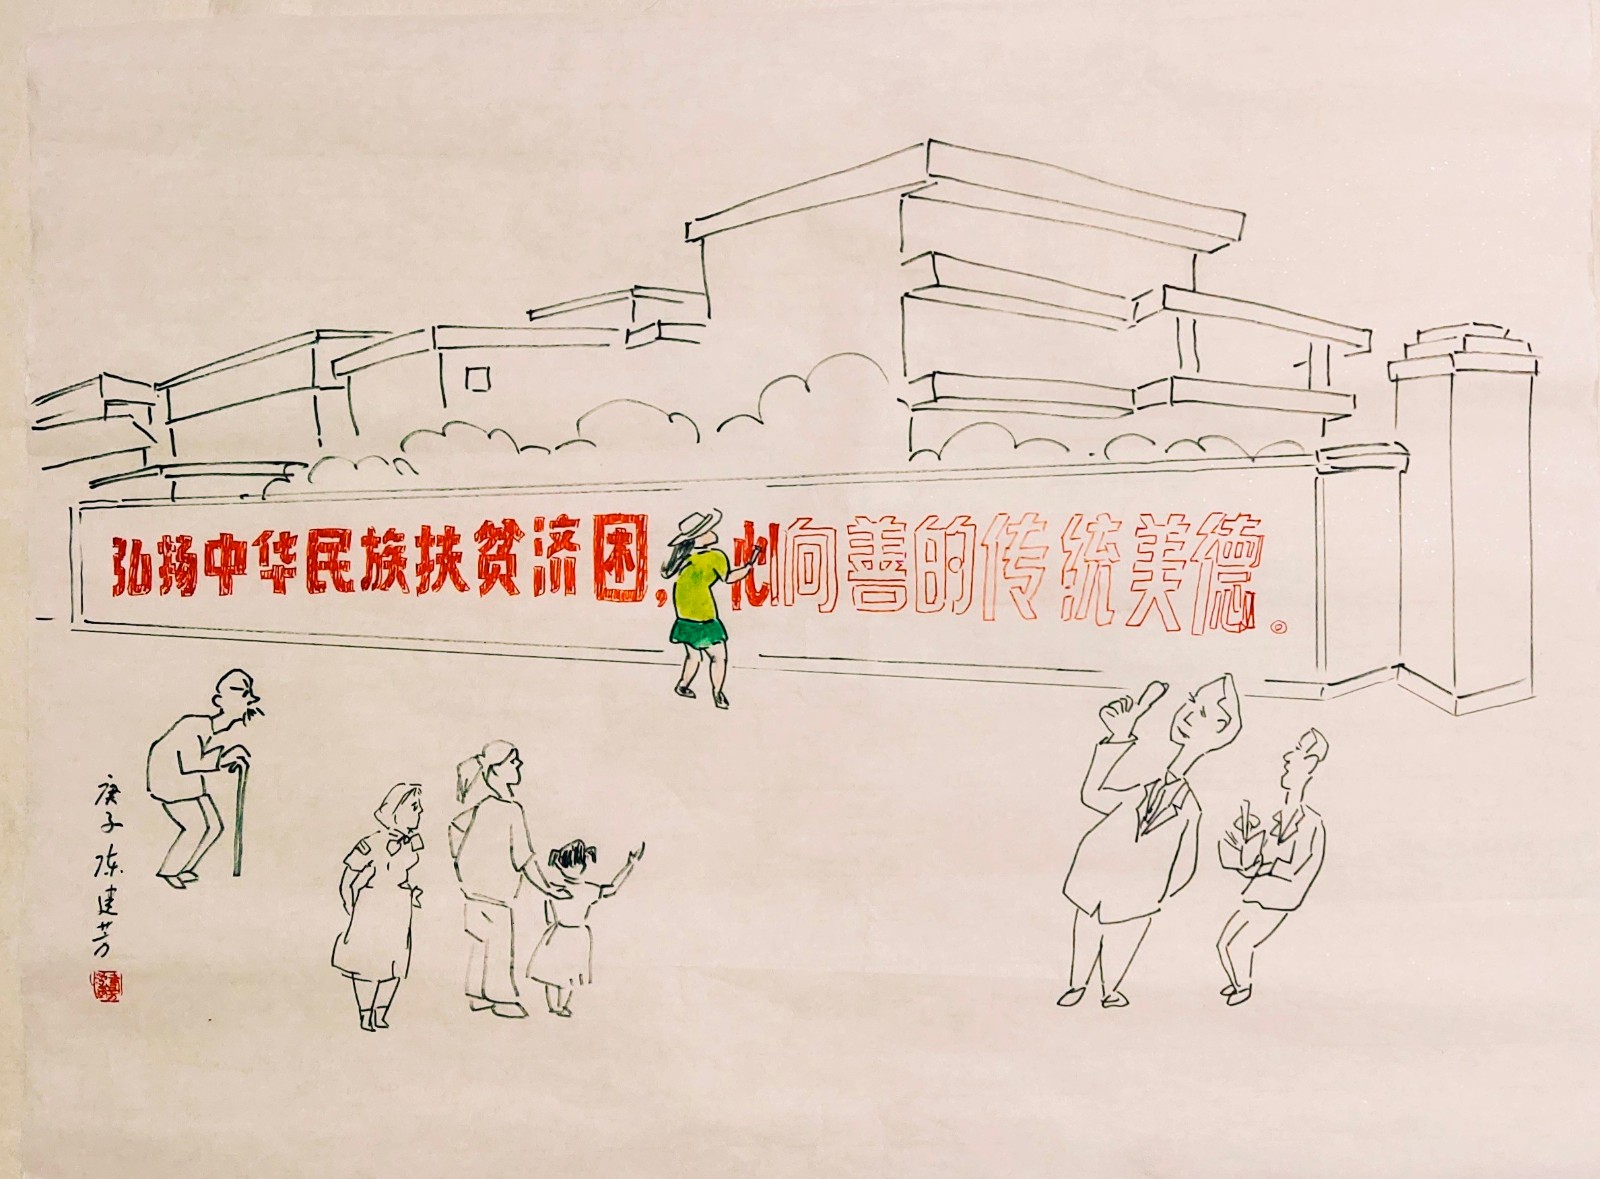 弘扬中华民族扶贫济困，心向善的传统美德。
庚子陈建芳